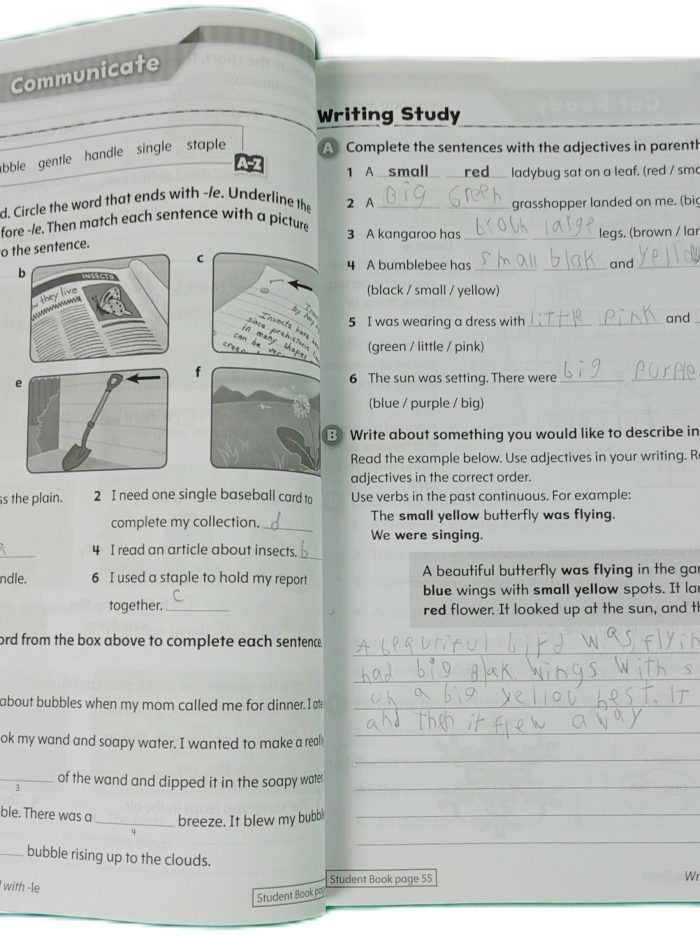 Communicate
bble gentle handle single staple
A-Z
d. Circle the word that ends with -le. Underline the
fore -le. Then match each sentence with a picture
o the sentence.
b
INSECTS
w they live
c
Insects have
since prehistoric
in many shapes
can be
e
f
ss the plain.
2 I need one single baseball card to
complete my collection. d
4 I read an article about insects. b
ndle.
6 I used a staple to hold my report
together. c
ord from the box above to complete each sentence
about bubbles when my mom called me for dinner. I ate
ok my wand and soapy water. I wanted to make a really
of the wand and dipped it in the soapy water.
3
ble. There was a breeze. It blew my bubble
4
bubble rising up to the clouds.
with -le
Student Book pag
Writing Study
A Complete the sentences with the adjectives in parenth
1 A small red ladybug sat on a leaf. (red / sma
2 A Big Green grasshopper landed on me. (big
3 A kangaroo has broun large legs. (brown / lar
4 A bumblebee has small blak and yellow
(black / small / yellow)
5 I was wearing a dress with little pink and
(green / little / pink)
6 The sun was setting. There were big purple
(blue / purple / big)
B Write about something you would like to describe in
Read the example below. Use adjectives in your writing. Re
adjectives in the correct order.
Use verbs in the past continuous. For example:
The small yellow butterfly was flying.
We were singing.
A beautiful butterfly was flying in the gar
blue wings with small yellow spots. It lan
red flower. It looked up at the sun, and th
A beautiful bird was flyin
had big Blak wings with s
on a big yellou nest. It
and then it flew away
Student Book page 55
Wr